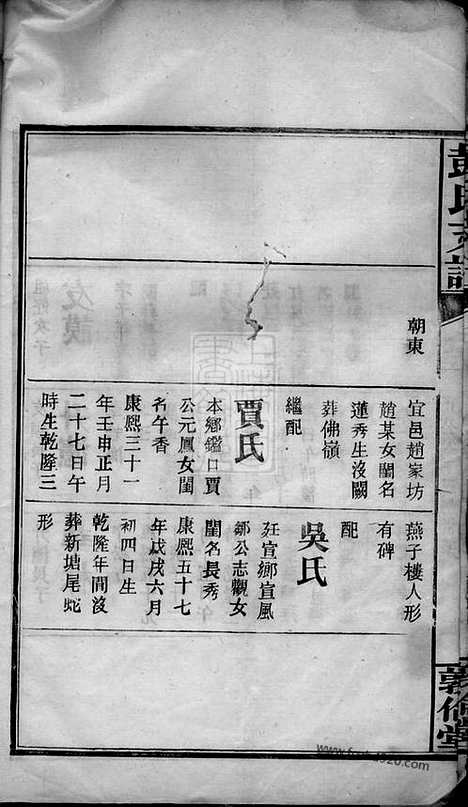 彭氏支譜
朝東
宜邑趙家坊
趙某女閨名
蓮秀生沒闕
葬佛嶺
繼配
賈氏
本鄉鑑口賈
公元鳳女閨
名午香
康熙三十一
年壬申正月
二十七日午
時生乾隆三
燕子樓人形
有碑
配
吳氏
宣鄉宣風
鄒公志觀女
閨名長秀
康熙五十七
年戊戌六月
初四日生
乾隆年間沒
葬新塘尾蛇
形
敦 堂